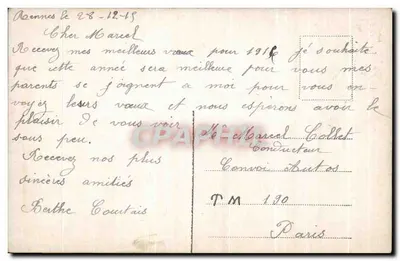 Rennes le 28-12-15
Cher Marcel
Recevez mes meilleurs vœux pour 1916 je souhaite
que cette année sera meilleure pour vous mes
parents se joignent a moi pour vous en-
voyez leurs vœux et nous esperons avoir le
plaisir de vous voir
sous peu.
Recevez nos plus
sincères amitiés
Berthe Courtais
Mr Marcel Collet
Conducteur
Convoi Autos
TM 190
Paris
CPARAMA